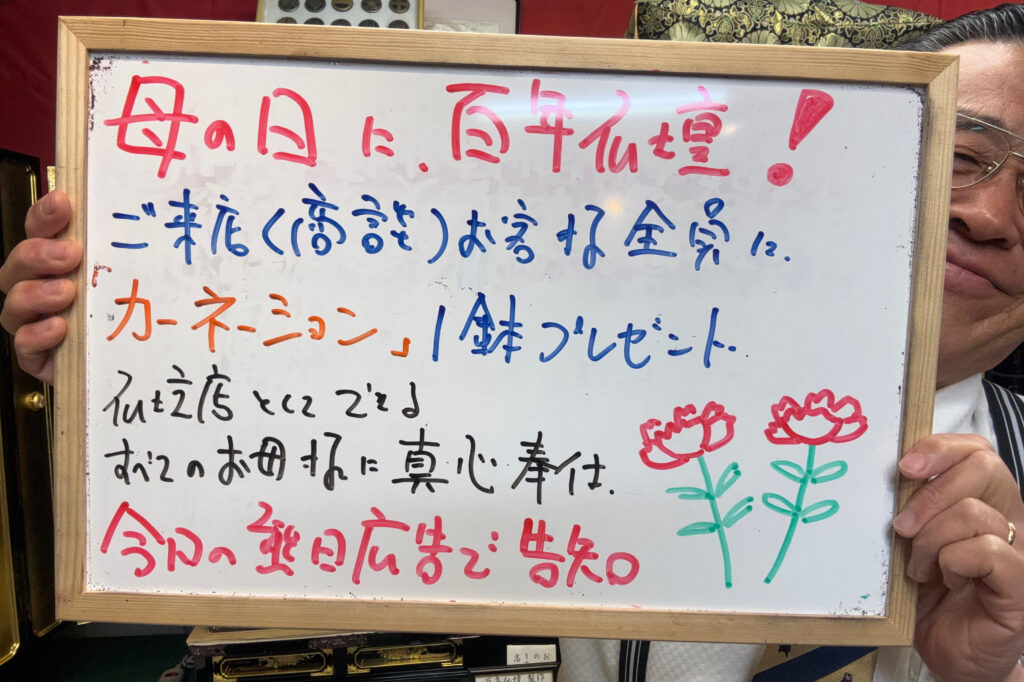 母の日に、百年仏壇!
ご来店(商談)お客様全員に、
「カーネーション」1鉢プレゼント
仏立店としてできる
すべてのお母様に真心奉仕。
今月の 日広告で告知